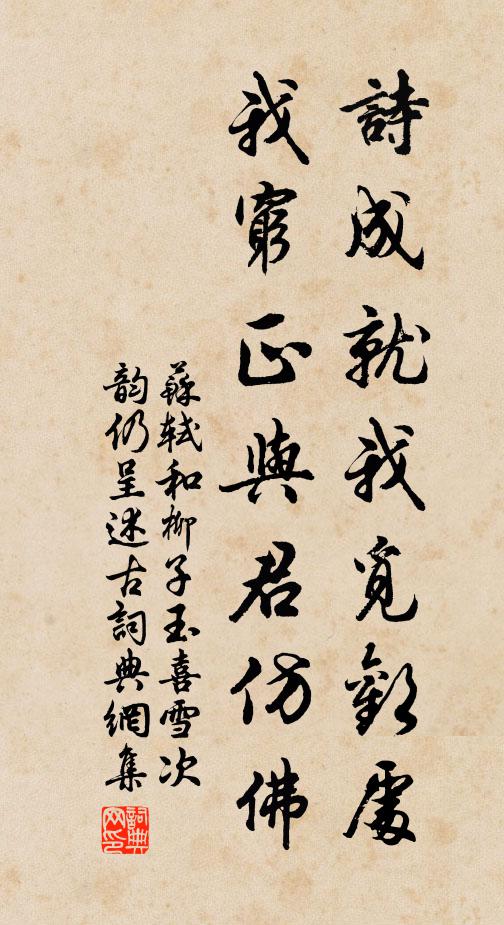 詩成就我覓歡處
我窮正與君仿佛
蘇軾和柳子玉喜雪次
韵仍呈述古詞典網集
詞典
网印